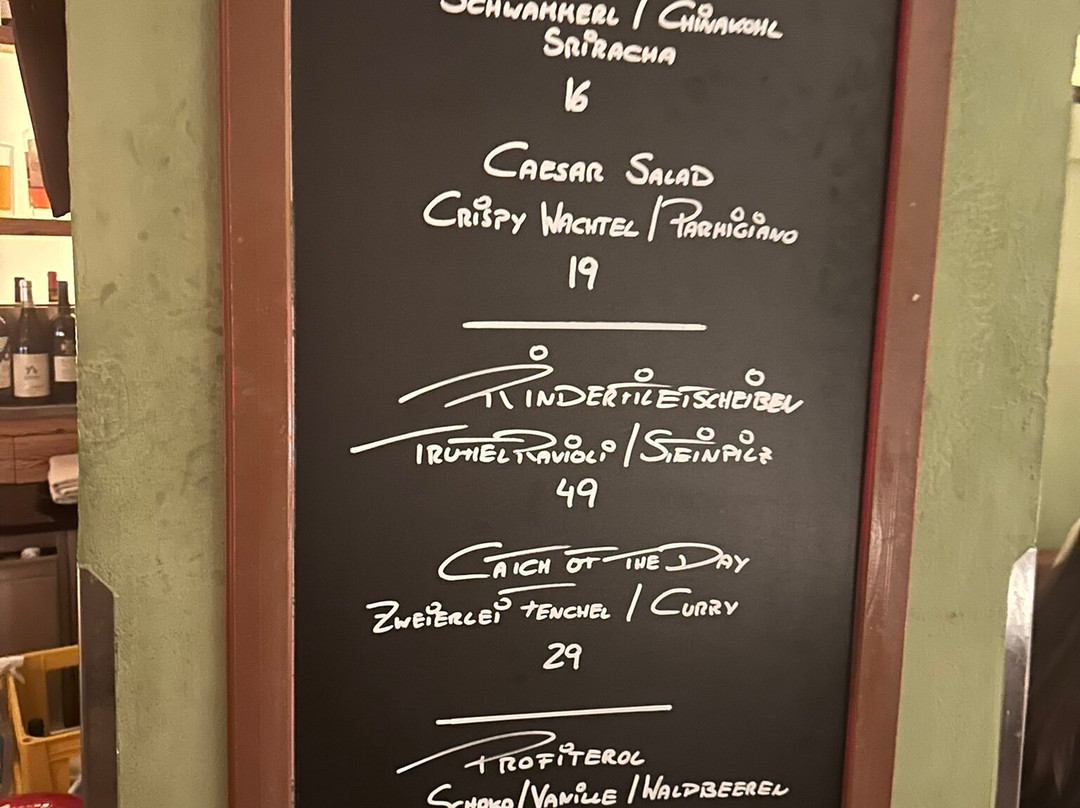 SCHWAMMERL / CHINAKOHL
SRIRACHA
16
CAESAR SALAD
CRISPY WACHTEL / PARMIGIANO
19
RINDERFILETSCHEIBEN
TRÜFFELRAVIOLI / STEINPILZ
49
CATCH OF THE DAY
ZWEIERLEI FENCHEL / CURRY
29
PROFITEROL
SCHOKO / VANILLE / WALDBEEREN